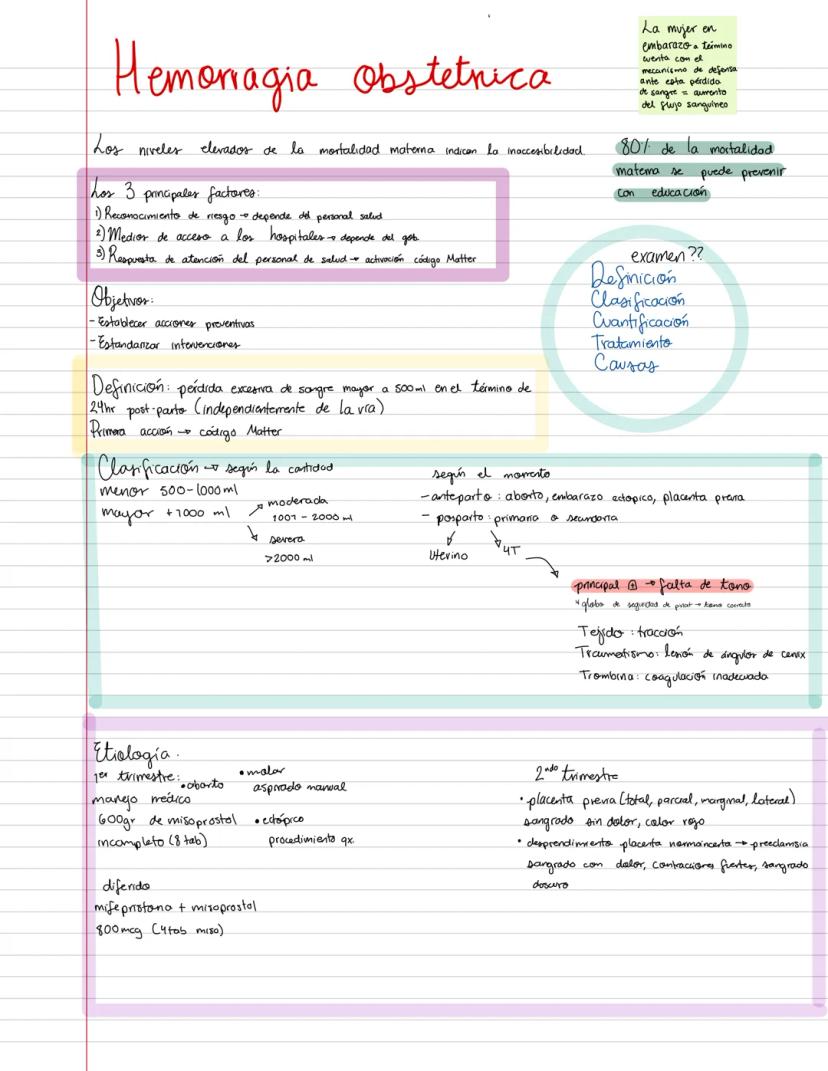 Hemorragia obstetrica
La mujer en
embarazo a término
cuenta con el
mecanismo de defensa
ante esta pérdida
de sangre = aumento
del flujo sanguineo
Los niveles elevados de la mortalidad materna indican la inaccesibilidad.
80% de la mortalidad
materna se puede prevenir
con educación
Los 3 principales factores:
1) Reconocimiento de riesgo → depende del personal salud
2) Medios de acceso a los hospitales → depende del gob.
3) Respuesta de atención del personal de salud → activación código Matter
examen??
Definición
Clasificación
Cuantificación
Tratamiento
Causas
Objetivos:
- Establecer acciones preventivas
- Estandarizar intervenciones
Definición: pérdida excesiva de sangre mayor a 500ml en el término de
24hr post-parto (independientemente de la vía)
Primera acción → código Matter
Clasificación → según la cantidad
menor 500-1000 ml
mayor +1000 ml
moderada
1001 - 2000 ml
severa
>2000 ml
según el momento
- anteparto: aborto, embarazo ectopico, placenta previa
- posparto: primaria o secundaria
Uterino
4T
principal → falta de tono
globo de seguridad de pinot → tono correcto
Tejido: tracción
Traumatismo: lesión de ángulos de cervix
Trombina: coagulación inadecuada
Etiología.
1er trimestre:
• aborto
manejo médico
600gr de misoprostol
incompleto (8 tab)
diferido
mifepristona + misoprostol
800mcg (4tab miso)
• molar
aspirado manual
• ectópico
procedimiento qx
2ndo trimestre
• placenta previa (total, parcial, marginal, lateral)
sangrado sin dolor, color rojo
• desprendimiento placenta normoincerta → preeclamsia
sangrado con dolor, contracciones fuertes, sangrado